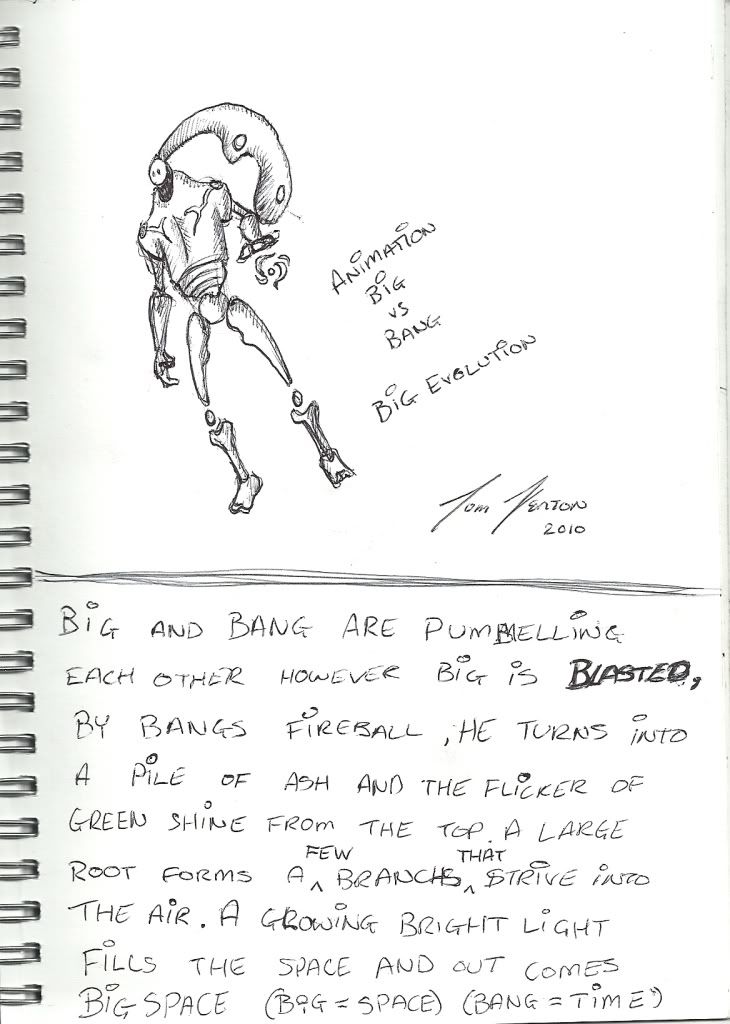 ANIMATION
BIG
VS
BANG
BIG EVOLUTION
TOM
2010
BIG AND BANG ARE PUMMELLING
EACH OTHER HOWEVER BIG IS BLASTED,
BY BANGS FIREBALL, HE TURNS INTO
A PILE OF ASH AND THE FLICKER OF
GREEN SHINE FROM THE TOP. A LARGE
ROOT FORMS A FEW BRANCHS THAT STRIVE INTO
THE AIR. A GROWING BRIGHT LIGHT
FILLS THE SPACE AND OUT COMES
BIG SPACE (BIG = SPACE) (BANG = TIME)